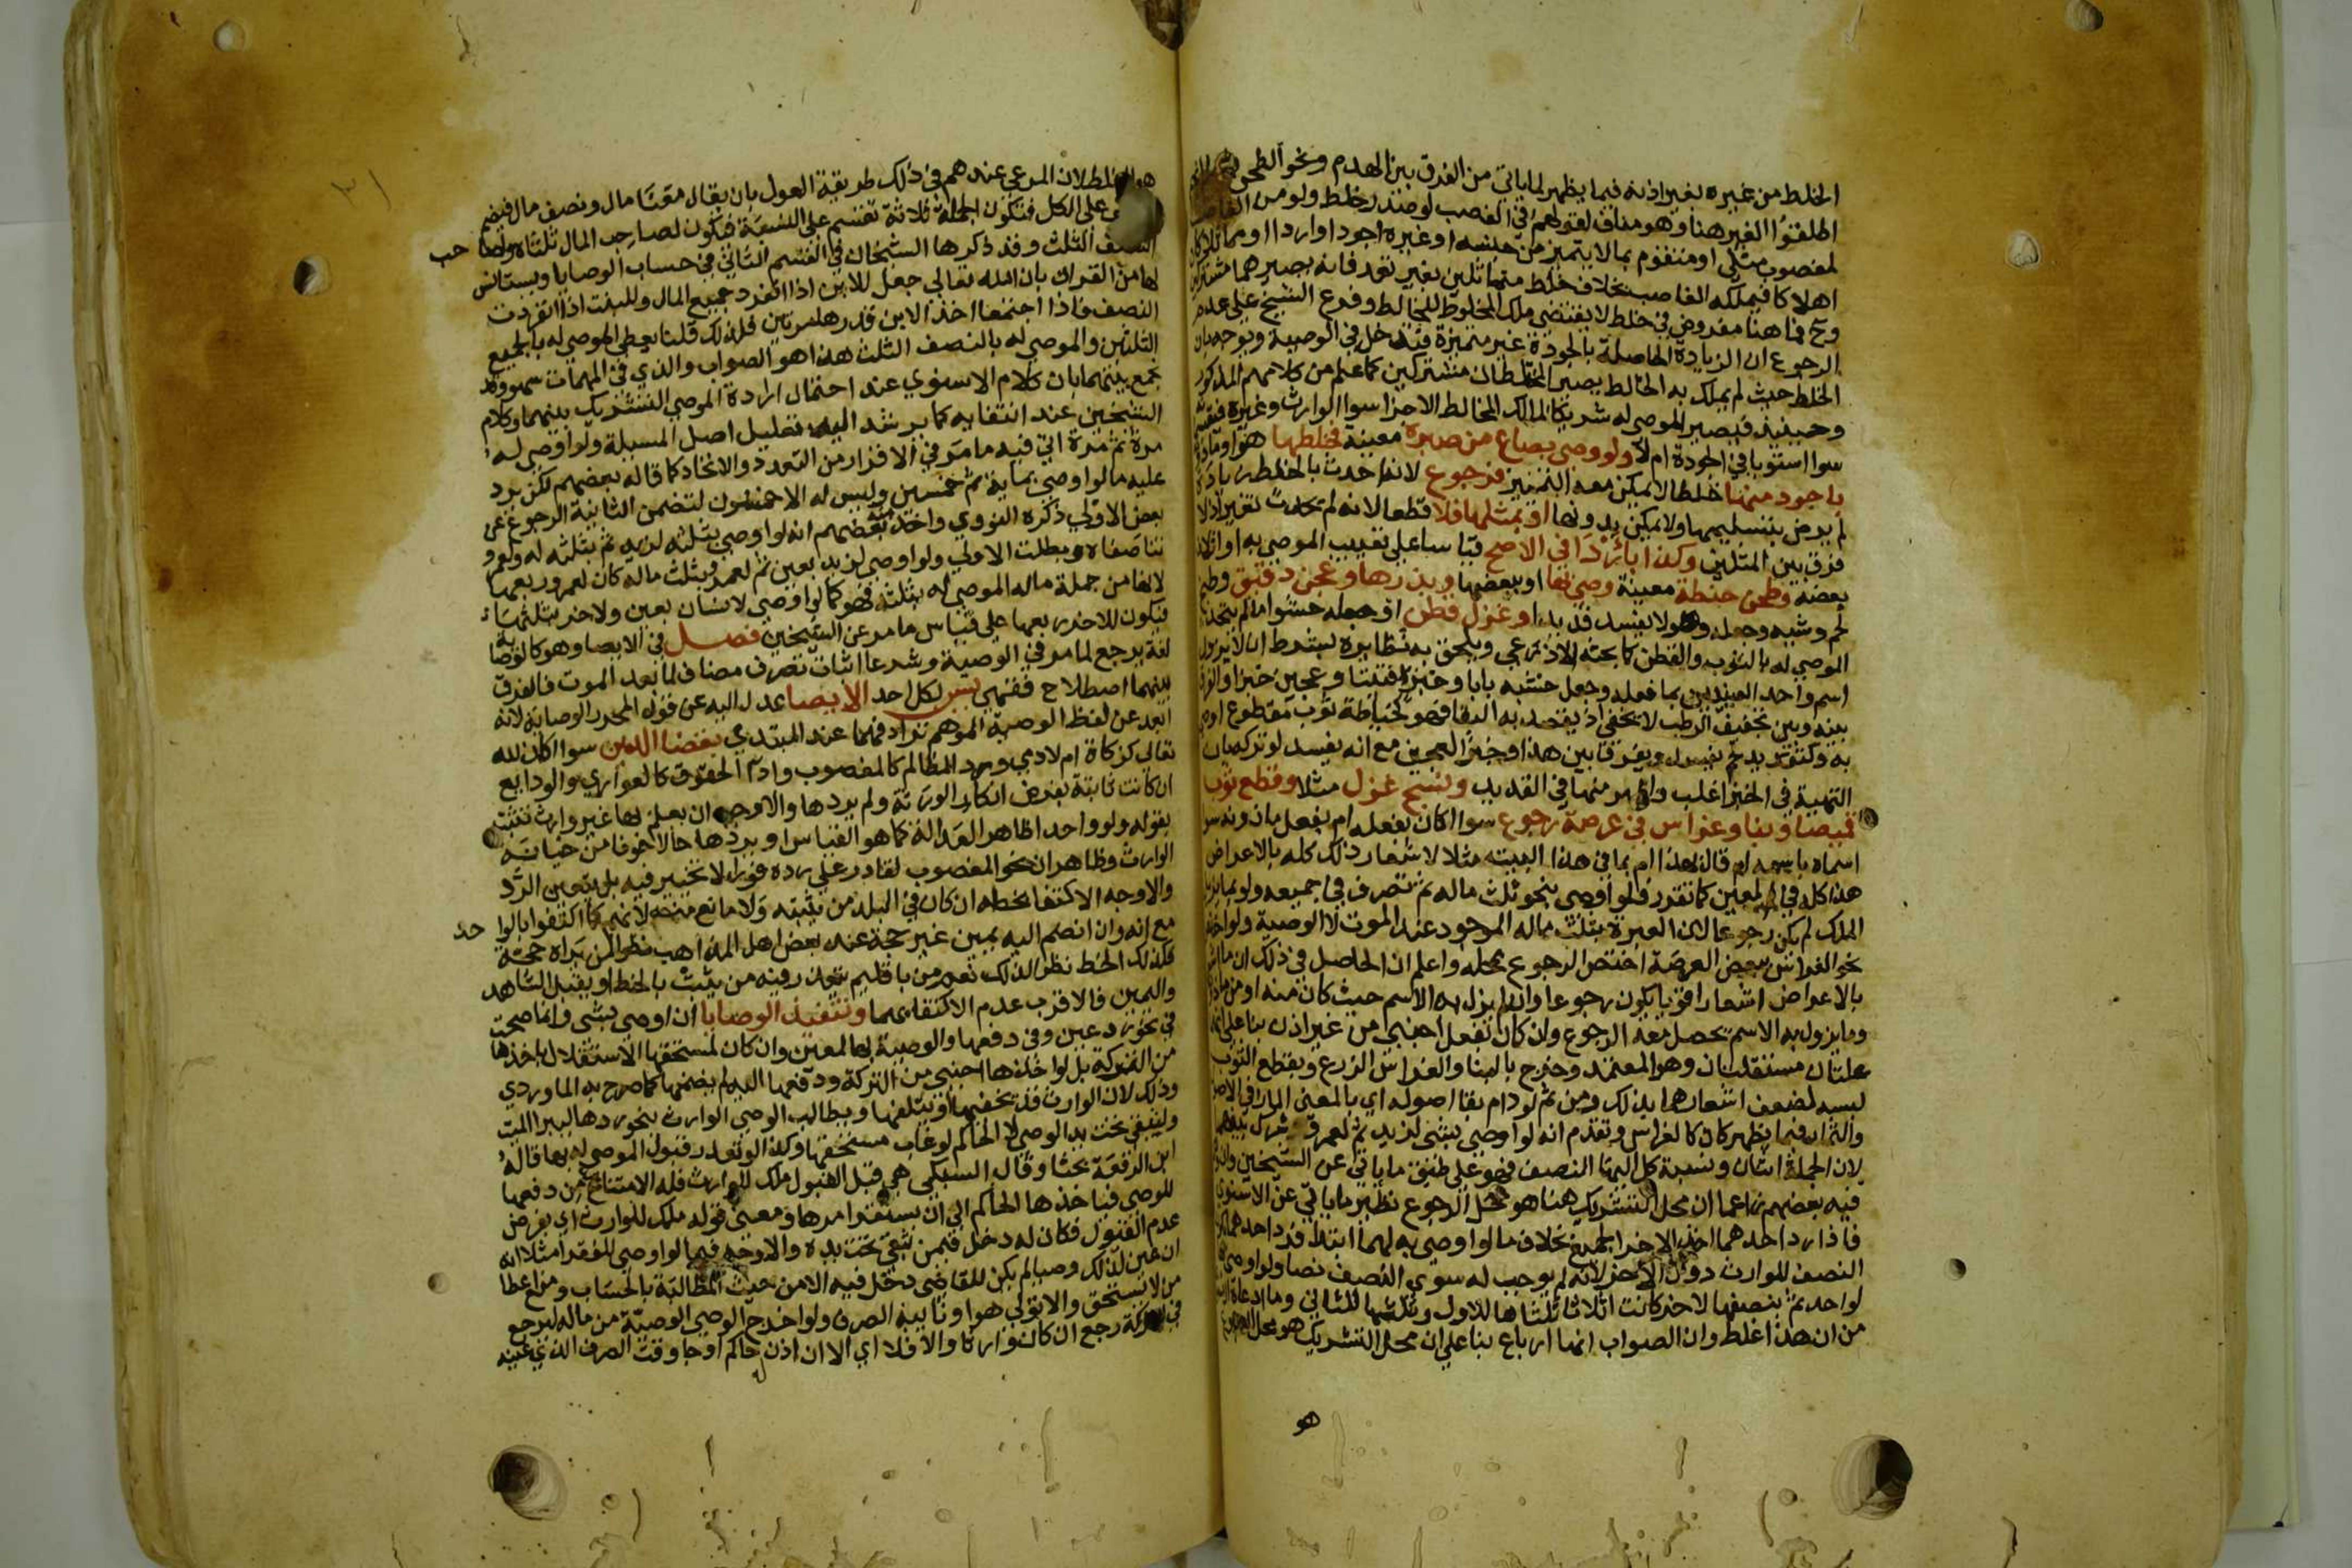 الخلط من غيره بغير اذنه فيما يظهر لما ياتي من الفرق بين الهدم ونحو الطحن
اطلقوا الغير هنا وهو مناف لقولهم في الغصب لو صدر خلط ولو من
لمغصوب مثلي او متقوم بما لا يتميز من جنسه او غيره اجود او اردا او مماثلا كان
اهلا كا فيملكه الغاصب بخلاف خلط مثماثلين بغير تعد فانه يصيرهما مشتركين
وح فما هنا مفروض في خلط لا يقتضي ملك المخلوط للخالط وفرع الشيخ علي عدم
الرجوع ان الزيادة الحاصلة بالجودة غير متميزة فتدخل في الوصية ويوجه بان
الخلط حيث لم يملك به الخالط يصير المختلطان مشتركين كما علم من كلامهم المذكور
وحينيذ فيصير الموصي له شريكا لمالك المخالط الاخر سوا الوارث وغيره
سوا استويا في الجودة ام لا ولو وصي بصاع من صبرة معينة فخلطها هو او
باجود منها خلطا لا يمكن معه التمييز فرجوع لانه احدث بالخلط زيادة
لم يرض بتسليمها ولا يمكن بدونها او بمثلها فلا قطعا لانه لم يحدث تغيير اذ لا
فرق بين المثلين وكذا باردا في الاصح قياسا علي تعييب الموصي به او اتلاف
بعضه وطحن حنطة معينة وصي بها او ببعضها وبذرها وعجن دقيق وطبخ
لحم وشيه وجعله وهو لا يفسد قديدا وغزل قطن او جعله حشوا ما لم يتحد
الموصي له بالثوب والقطن كما بحثه الاذرعي ويلحق به نظايره بشرط ان لا يزول
اسم واحد العيدين بما فعله وجعل خشبه بابا وخبزه فتيتا وعجين خبزا والفرق
بينه وبين تجفيف الرطب لا يخفي اذ يقصد به البقا فهو كخياطة ثوب مقطوع اوصي
به وكتقديد لحم يفسد ويفرق بين هذا وخبز العجين مع انه يفسد لو ترك بان
التهيية في الخبز اغلب واظهر منها في القديد ونسج غزل مثلا وقطع ثوب
قميصا وبنا وغراس في عرصة رجوع سوا اكان بفعله ام بفعل ماذونه سوا
اسماه باسمه ام قال بهذا ام بما في هذا البيت مثلا لاشعار ذلك كله بالاعراض
هذا كله في المعين كما تقرر فلو اوصي بنحو ثلث ماله ثم تصرف في جميعه ولو بما يزيل
الملك لم يكن رجوعا لان العبرة بثلث ماله الموجود عند الموت لا الوصية ولو اختص
نحو الغراس ببعض العرصة اختص الرجوع بمحله واعلم ان الحاصل في ذلك ان ما اشعر
بالاعراض اشعارا قويا يكون رجوعا وان لم يزل به الاسم حيث كان منه او من ماذونه
وما يزول به الاسم يحصل معه الرجوع وان كان بفعل اجنبي من غير اذن بنا علي انهما
علتان مستقلتان وهو المعتمد وخرج بالبنا والغراس الزرع وبقطع الثوب
لبسه لضعف اشعارهما بذلك ومن ثم لو دام بقا اصوله اي بالمعني المار في الاصول
والثمار فيما يظهر كان كالغراس وتقدم انه لو اوصي بشي لزيد ثم لعمرو شرك بينهما
لان الجملة اثنان ونسبة كل اليها النصف فهو علي طبق ما ياتي عن الشيخين وان
فيه بعضهم زاعما ان محل التشريك هنا هو محل الرجوع نظير ما ياتي عن الاسنوي
فاذا رد احدهما اخذ الاخر الجميع بخلاف ما لو اوصي به لهما ابتدا فرد احدهما
النصف للوارث دون الاخر لانه لم يوجب له سوي النصف نصا ولو اوصي
لواحد ثم بنصفها لاخر كانت اثلاثا ثلثاها للاول وثلثها للثاني وما ادعاه
من ان هذا غلط وان الصواب انها ارباع بنا علي ان محل التشريك هو محل الرجوع
هو
هو الغلط لان المرعي عندهم في ذلك طريقة العول بان يقال معنا مال ونصف مال فيضم
علي الكل فتكون الجملة ثلاثة تقسم علي النسبة فتكون لصاحب المال ثلثاه ولصاحب
النصف الثلث وقد ذكرها الشيخان في القسم الثاني في حساب الوصايا ويستانس
لها من القران بان الله تعالي جعل للابن اذا انفرد جميع المال وللبنت اذا انفردت
النصف فاذا اجتمعا اخذ الابن قدرها مرتين فلذلك قلنا يعطي الموصي له بالجميع
الثلثين والموصي له بالنصف الثلث هذا هو الصواب والذي في المهمات سهو وقد
يجمع بينهما بان كلام الاسنوي عند احتمال ارادة الموصي التشريك بينهما وكلام
الشيخين عند انتفايه كما يرشد اليه تعليل اصل المسيلة ولو اوصي له
مرة ثم مرة اتي فيه ما مر في الاقرار من التعدد والاتحاد كما قاله بعضهم لكن يرد
عليه ما لو اوصي بماية ثم خمسين وليس له الا خمسون لتضمن الثانية الرجوع عن
بعض الاولي ذكره النووي واخذ منه بعضهم انه لو اوصي بثلثه لزيد ثم بثلثه له ولعمرو
تناصفاه وبطلت الاولي ولو اوصي لزيد بعين ثم لعمرو بثلث ماله كان لعمرو ربعها
لانها من جملة ماله الموصي له بثلثه فهو كما لو اوصي لانسان بعين ولاخر بثلثها
فيكون للاخر ربعها علي قياس ما مر عن الشيخين فصل في الايصا وهو كالوصاية
لغة يرجع لما مر في الوصية وشرعا اثبات تصرف مضاف لما بعد الموت فالفرق
بينهما اصطلاح فقهي يسن لكل احد الايصا عدل اليه عن قول المحرر الوصاية لانه
ابعد عن لفظ الوصية الموهم ترادفهما عند المبتدي بقضا الدين سوا اكان لله
تعالي كزكاة ام لادمي ورد المظالم كالمغصوب وادا الحقوق كالعواري والودايع
ان كانت ثابتة بفرض انكار الورثة ولم يردها والاوجه ان يعلم بها غير وارث تثبت
بقوله ولو واحدا ظاهر العدالة كما هو القياس او يردها حالا خوفا من خيانة
الوارث وظاهر ان نحو المغصوب لقادر علي رده فورا لا تخيير فيه بل يتعين الرد
والاوجه الاكتفا بخطه ان كان في البلد من يثبته ولا مانع منه لانهم كما اكتفوا بالواحد
مع انه وان انضم اليه يمين غير حجة عند بعض اهل المذاهب نظرا لمن يراه حجة
فكذلك الخط نظرا لذلك نعم من باقليم يتعذر فيه من يثبت بالخط او يقبل الشاهد
واليمين فالاقرب عدم الاكتفا بهما وتنفيذ الوصايا ان اوصي بشي وانما صحت
في نحو رد عين وفي دفعها والوصية بها لمعين وان كان لمستحقها الاستقلال باخذها
من التركة بل لو اخذها اجنبي من التركة ودفعها اليه لم يضمنها كما صرح به الماوردي
وذلك لان الوارث قد يخفيها او يتلفها ويطالب الوصي الوارث بنحو ردها ليبرا الميت
ولتبقي تحت يد الوصي لا الحاكم لو غاب مستحقها وكذا لو تعذر قبول الموصي له بها قاله
ابن الرفعة بحثا وقال السبكي هي قبل القبول ملك للوارث فله الامتناع من دفعها
للوصي فياخذها الحاكم الي ان يستقر امرها ومعني قوله ملك للوارث اي بفرض
عدم القبول فكان له دخل فيمن تبقي تحت يده والاوجه فيما لو اوصي للفقرا مثلا انه
ان عين لذلك وصيا لم يكن للقاضي دخل فيه الا من حيث المطالبة بالحساب ومنع اعطا
من لا يستحق والا تولي هو او نايبه الصرف ولو اخرج الوصي الوصية من ماله ليرجع
في التركة رجع ان كان وارثا والا فلا اي الا ان اذن له حاكم او جا وقت الصرف الذي عينه